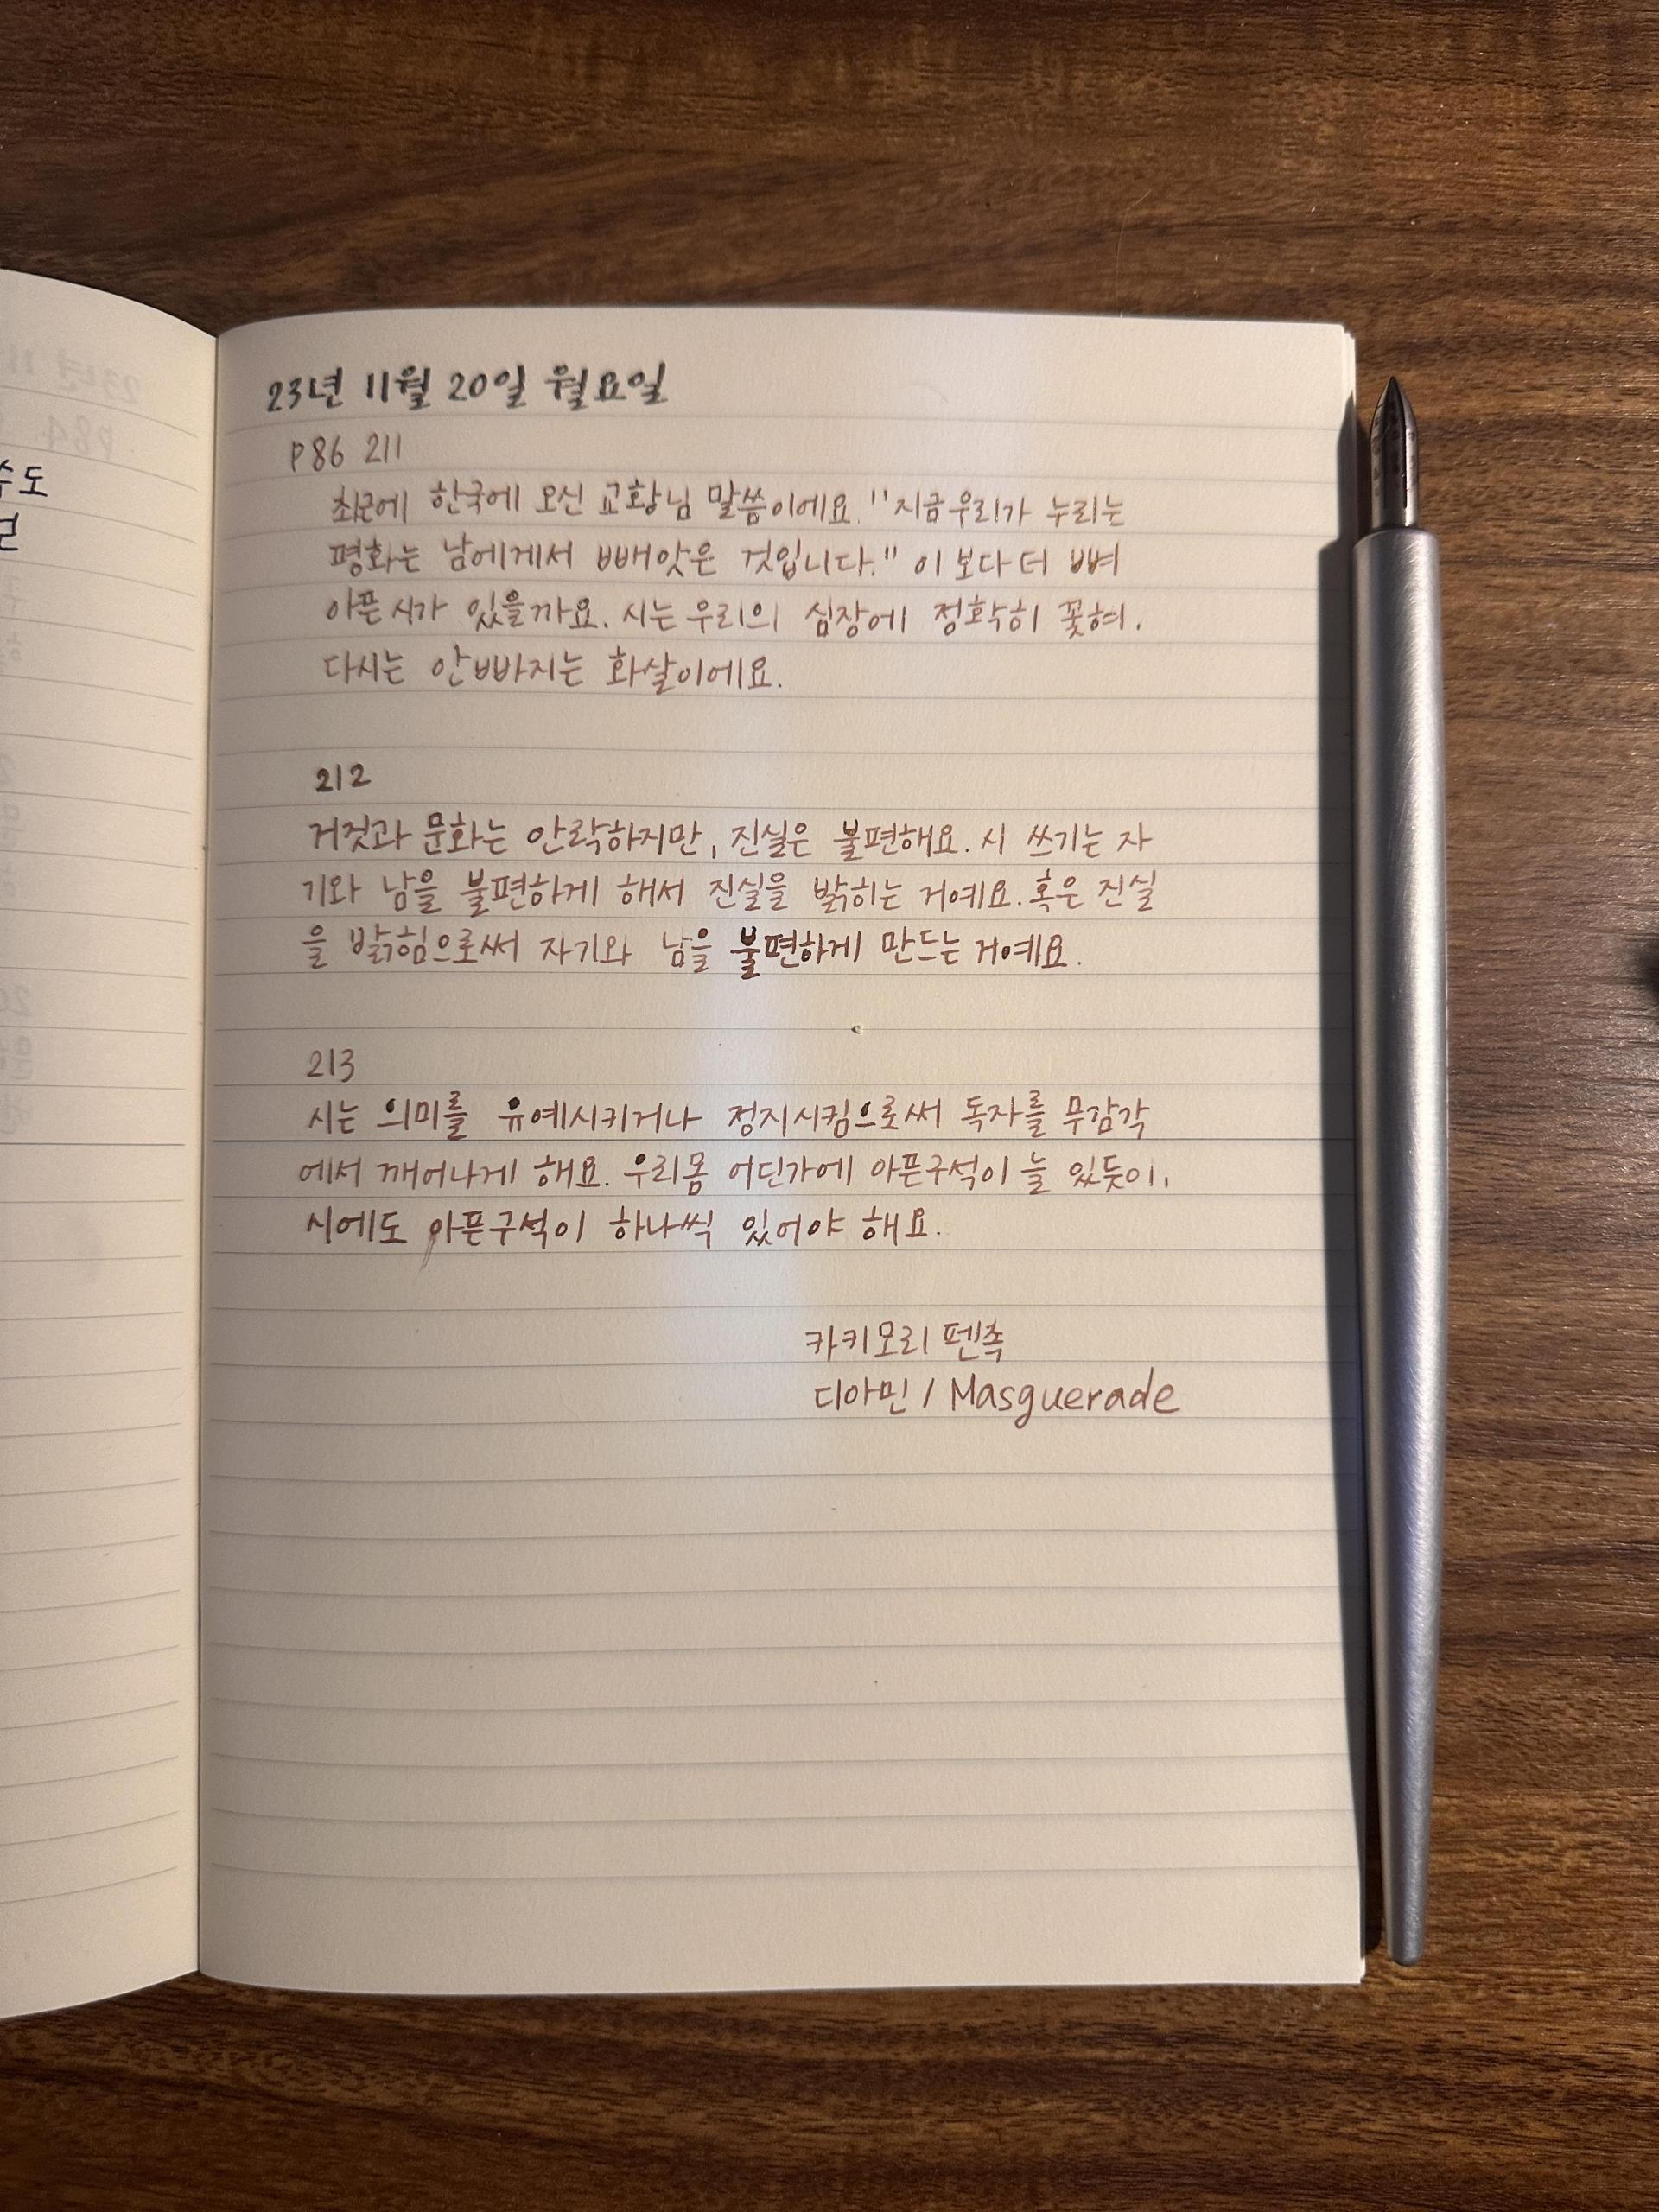 23년 11월 20일 월요일
P86 211
최근에 한국에 오신 교황님 말씀이에요. "지금 우리가 누리는
평화는 남에게서 빼앗은 것입니다." 이 보다 더 뼈
아픈 시가 있을까요. 시는 우리의 심장에 정확히 꽂혀.
다시는 안빠지는 화살이에요.
212
거짓과 문화는 안락하지만, 진실은 불편해요. 시 쓰기는 자
기와 남을 불편하게 해서 진실을 밝히는 거예요. 혹은 진실
을 밝힘으로써 자기와 남을 불편하게 만드는 거예요.
213
시는 의미를 유예시키거나 정지시킴으로써 독자를 무감각
에서 깨어나게 해요. 우리몸 어딘가에 아픈구석이 늘 있듯이,
시에도 아픈구석이 하나씩 있어야 해요.
카키모리 펜촉
디아민 / Masguerade
수도